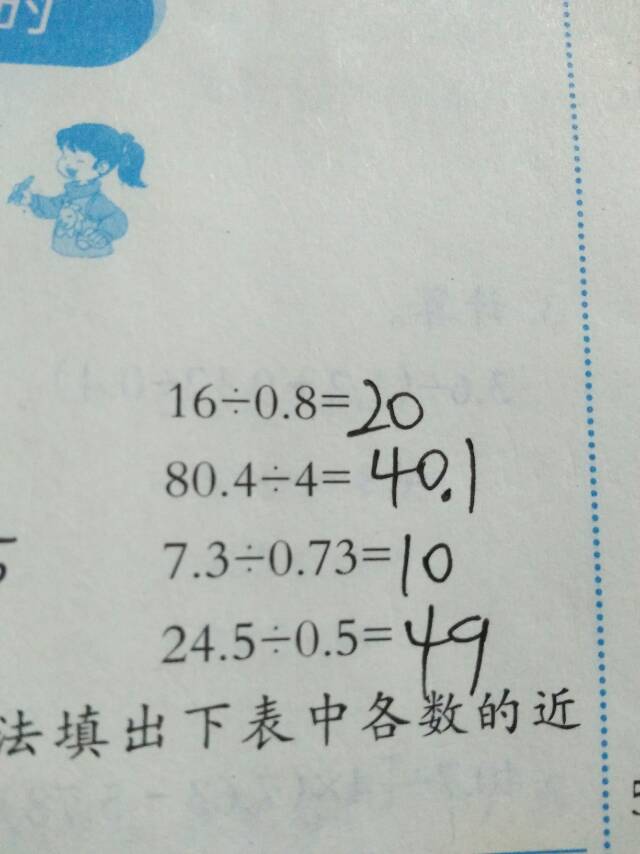 的
16÷0.8=20
80.4÷4=40.1
7.3÷0.73=10
24.5÷0.5=49
法填出下表中各数的近
5